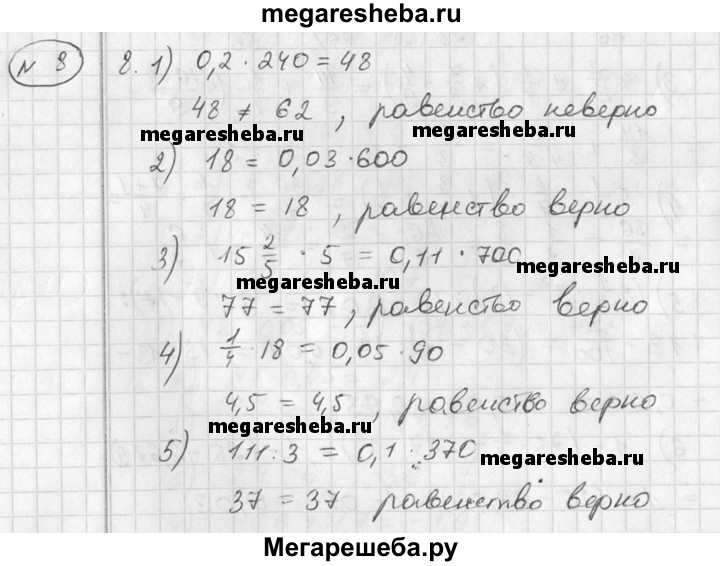 megaresheba.ru
№ 8
8. 1) 0,2 · 240 = 48
48 ≠ 62, равенство неверно
megaresheba.ru megaresheba.ru
2) 18 = 0,03 · 600
18 = 18, равенство верно
3) 15 2/5 · 5 = 0,11 · 700
megaresheba.ru megaresheba.ru
77 = 77, равенство верно
4) 1/4 · 18 = 0,05 · 90
4,5 = 4,5, равенство верно
megaresheba.ru
5) 111 : 3 = 0,1 · 370
megaresheba.ru
37 = 37 равенство верно
Мегарешеба.ру